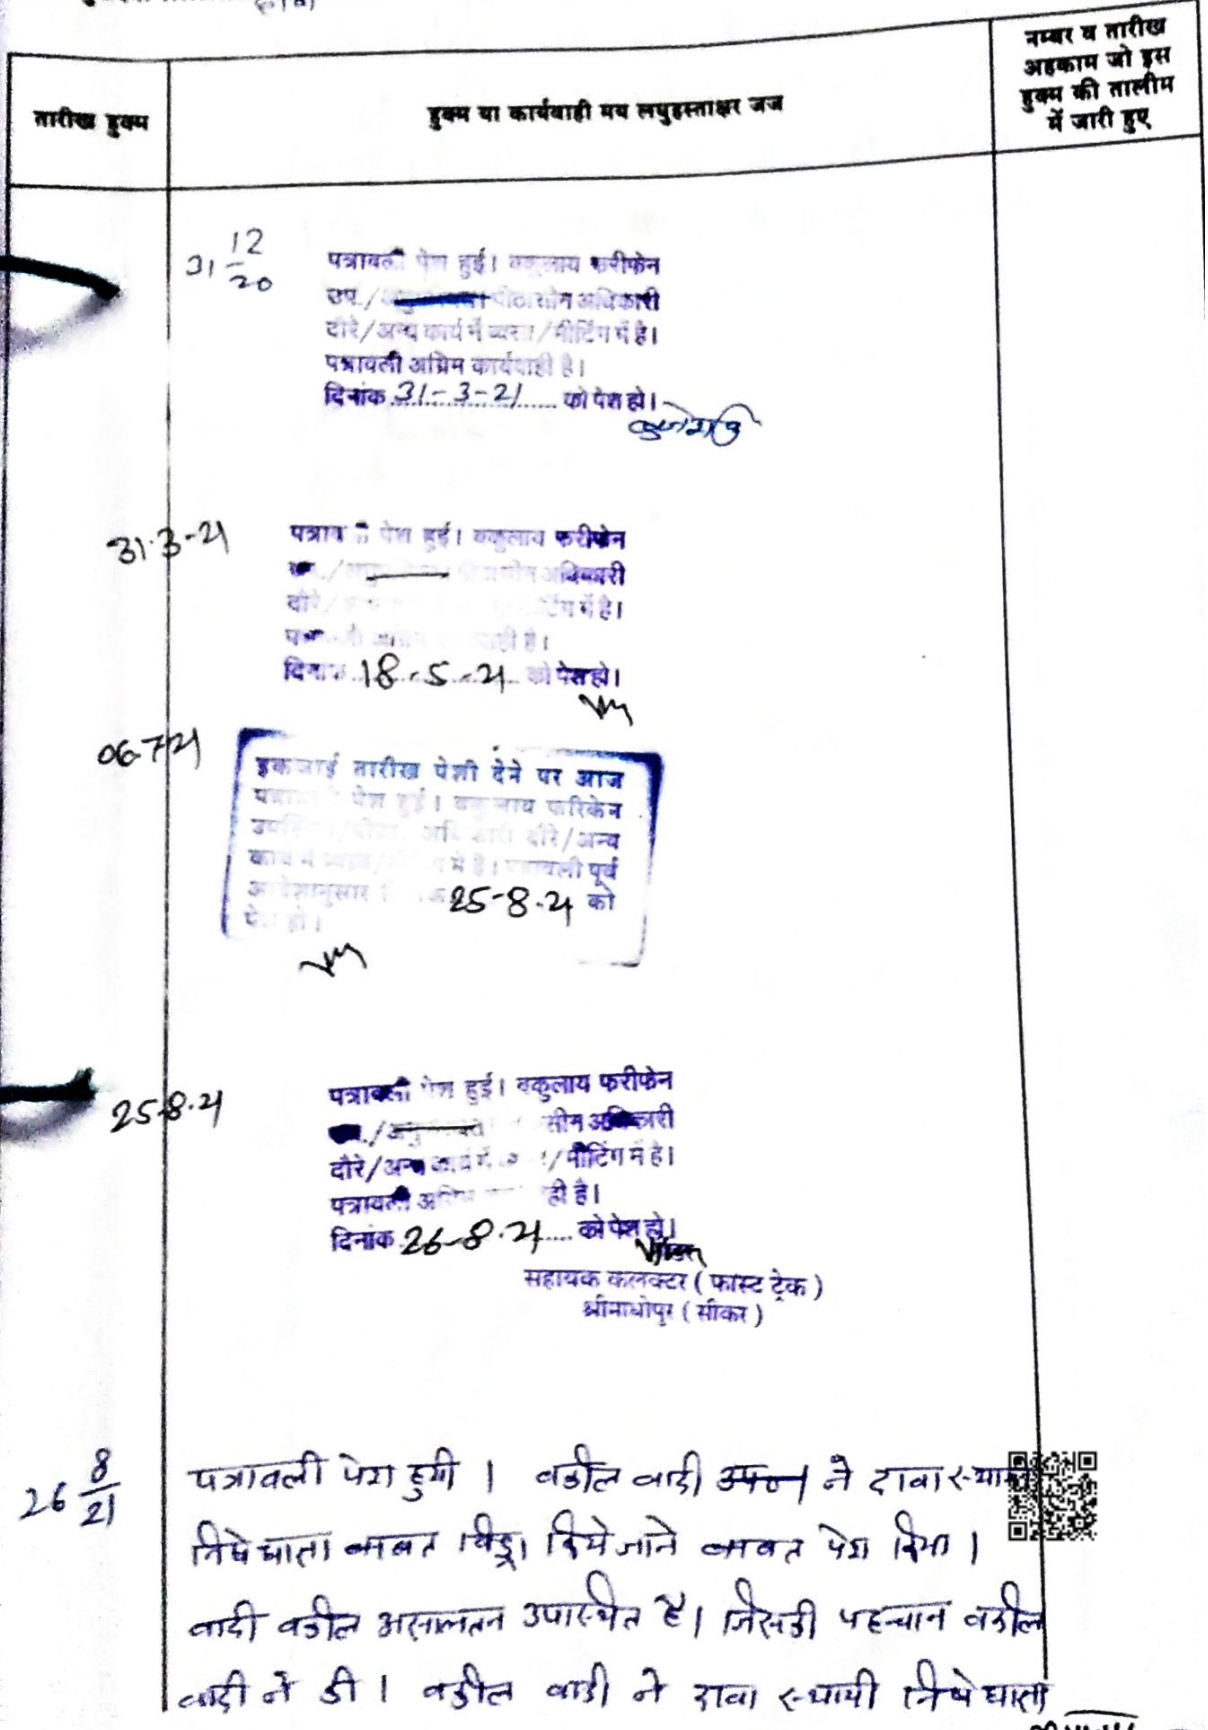 तारीख हुक्म
हुक्म या कार्यवाही मय लघुहस्ताक्षर जज
नम्बर व तारीख
अहकाम जो इस
हुक्म की तालीम
में जारी हुए
31 12/20
पत्रावली पेश हुई। वकुलाय फरीकेन
उप./ पीठासीन अधिकारी
दौरे/अन्य कार्य में व्यस्त/मीटिंग में है।
पत्रावली अग्रिम कार्यवाही है।
दिनांक 31-3-21 को पेश हो।
31.3-21
पत्रावली पेश हुई। वकुलाय फरीकेन
अधिकारी
दौरे/ मीटिंग में है।
दिनांक 18-5-21 को पेश हो।
06-7-21
इकजाई तारीख पेशी देने पर आज
पत्रावली पेश हुई। वकुलाय फरिकेन
अधिकारी दौरे/अन्य
कार्य में में है। पत्रावली पूर्व
आदेशानुसार 25-8-21 को
पेश हो।
25-8-21
पत्रावली पेश हुई। वकुलाय फरीकेन
अधिकारी
दौरे/अन्य कार्य में /मीटिंग में है।
पत्रावली अग्रिम है।
दिनांक 26-8-21 को पेश हो।
सहायक कलक्टर ( फास्ट ट्रेक )
श्रीमाधोपुर ( सीकर )
26 8/21
पत्रावली पेश हुयी । वकील वादी ने दावा स्थायी
निषेधाता बाबत विड्रा किये जाने बाबत पेश किया ।
वादी वकील असालतन उपास्थित है। जिसकी पहचान वकील
वादी ने की । वकील वादी ने दावा स्थायी निषेधाता